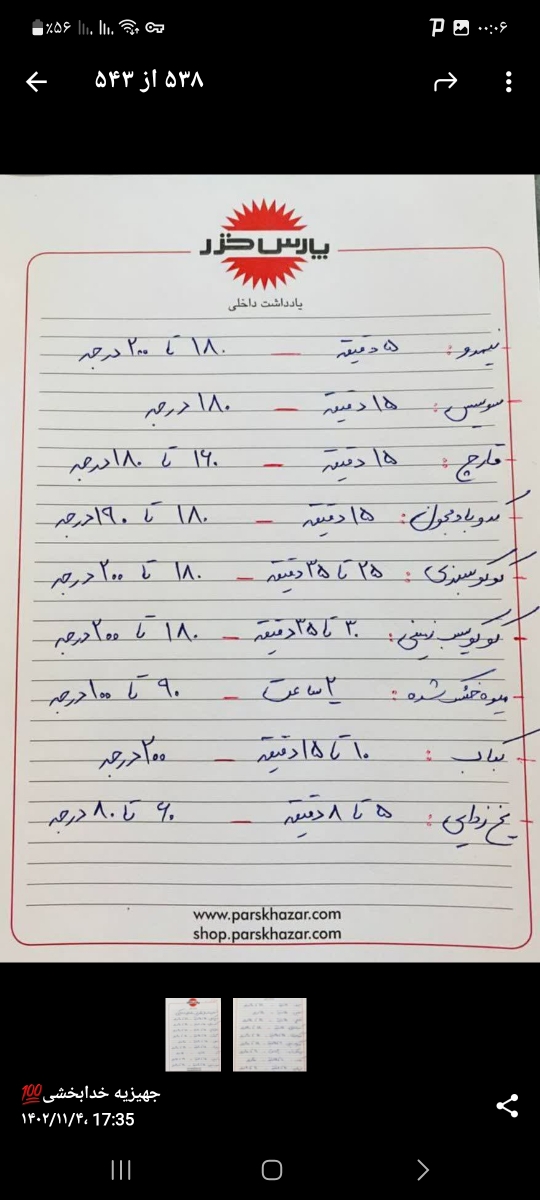 ٪۵۶ ۰۰:۰۶
۵۳۸ از ۵۴۳
پارس خزر
یادداشت داخلی
نیمرو : ۵ دقیقه — ۱۸۰ تا ۲۰۰ درجه
سوسیس : ۱۵ دقیقه — ۱۸۰ درجه
قارچ : ۱۵ دقیقه — ۱۶۰ تا ۱۸۰ درجه
کدو بادمجان : ۱۵ دقیقه — ۱۸۰ تا ۱۹۰ درجه
کوکو سبزی : ۲۵ تا ۳۵ دقیقه — ۱۸۰ تا ۲۰۰ درجه
کوکو سیب زمینی : ۳۰ تا ۳۵ دقیقه — ۱۸۰ تا ۲۰۰ درجه
میوه خشک شده : ۲ ساعت — ۹۰ تا ۱۰۰ درجه
کباب : ۱۰ تا ۱۵ دقیقه — ۲۰۰ درجه
یخ زدایی : ۵ تا ۸ دقیقه — ۶۰ تا ۸۰ درجه
www.parskhazar.com
shop.parskhazar.com
جهیزیه خدابخشی💯
۱۴۰۲/۱۱/۴، 17:35